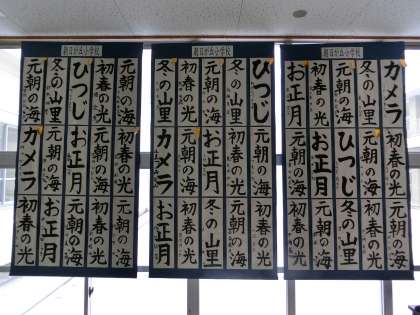 朝日が丘小学校
初春の光
初春の光
ひつじ
元朝の海
初春の光
元朝の海
お正月
カメラ
元朝の海
初春の光
元朝の海
お正月
初春の光
朝日が丘小学校
ひつじ
冬の山里
元朝の海
初春の光
冬の山里
元朝の海
初春の光
お正月
元朝の海
カメラ
初春の光
元朝の海
冬の山里
初春の光
お正月
朝日が丘小学校
カメラ
冬の山里
元朝の海
初春の光
お正月
初春の光
元朝の海
ひつじ
お正月
元朝の海
初春の光
元朝の海
冬の山里
元朝の海
初春の光